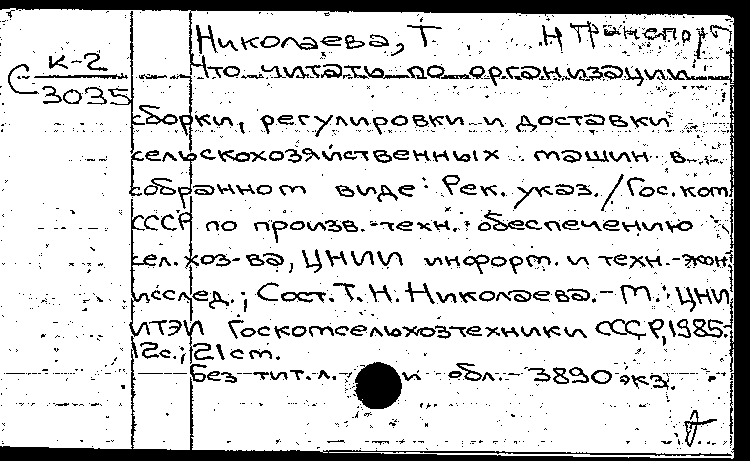 Николаева, Т Н Транспорт
С К-2
3035
Что читать по организации
сборки, регулировки и доставки
сельскохозяйственных машин в
собранном виде: Рек. указ./Гос. ком
СССР по произв.-техн. обеспечению
сел. хоз-ва, ЦНИИ информ. и техн.-экон
исслед.; Сост. Т. Н. Николаева.- М.: ЦНИ
ИТЭИ Госкомсельхозтехники СССР, 1985.-
12с.; 21 см.
Без тит. л. и обл.- 3890 экз.